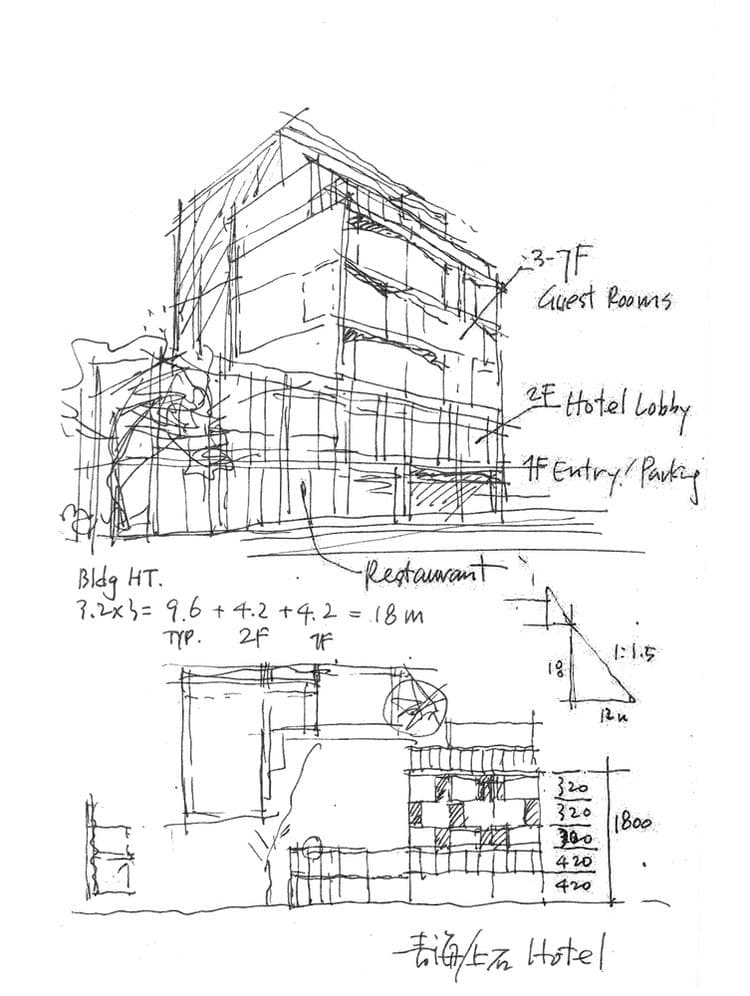 3-7F
Guest Rooms
2F Hotel Lobby
1F Entry/Parking
Restaurant
Bldg HT.
3.2x3= 9.6 + 4.2 + 4.2 = 18 m
TYP. 2F 1F
1:1.5
18
12m
320
320
320
420
420
1800
青海/上石 Hotel